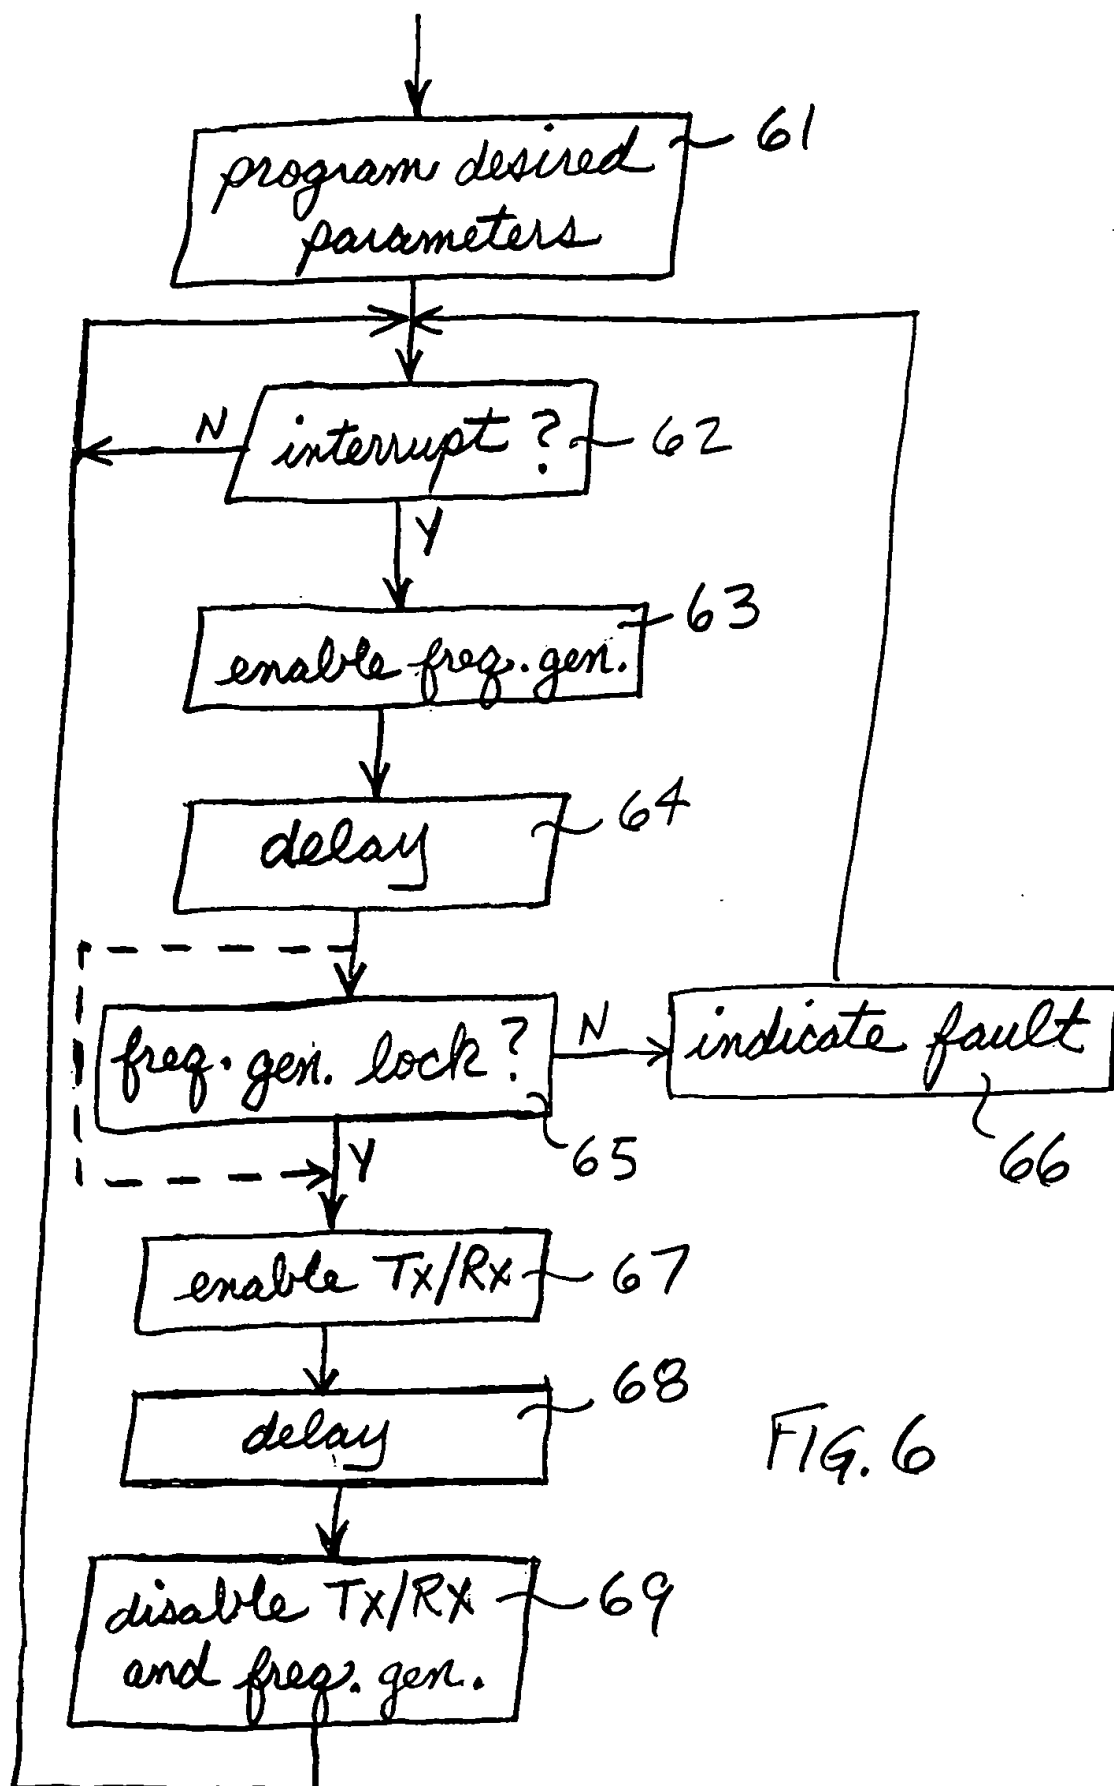 61
program desired
parameters
N
interrupt ?
62
Y
63
enable freq. gen.
64
delay
freq. gen. lock ?
N
indicate fault
65
Y
66
enable Tx/Rx
67
68
delay
FIG. 6
disable Tx/Rx
69
and freq. gen.